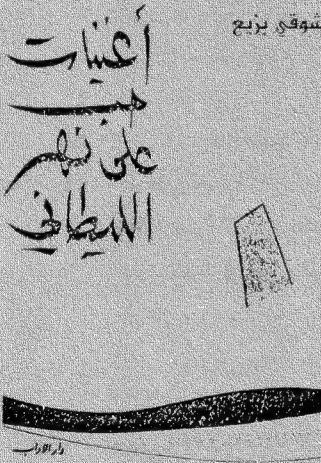 شوقي بزيع
أغنيات
حب
على نهر
الليطاني
دار الآداب